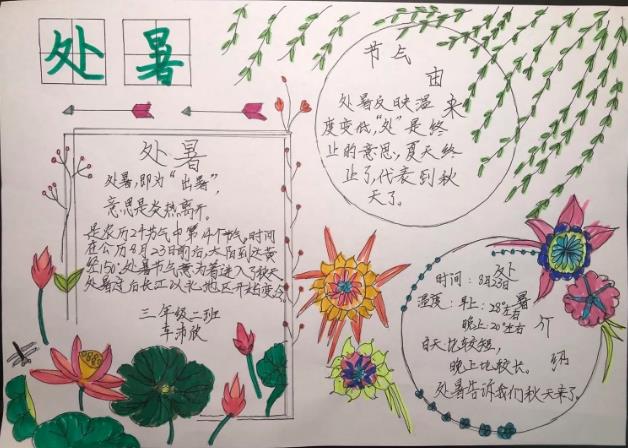 处暑
处暑
处暑,即为“出暑”,
意思是炎热离开。
是农历24节气中第14个节气。时间
在公历8月23日前后,太阳到达黄
经150°。处暑节气意为着进入了秋天
处暑过后长江以北地区开始变冷。
三年级二班
节气由来
处暑反映温
度变低,“处”是终
止的意思,夏天终
止了,代表到秋
天了。
处暑介绍
时间:8月23日
温度:早上:28°左右
晚上:20°左右
白天比较短,
晚上比较长。
处暑告诉我们秋天来了。